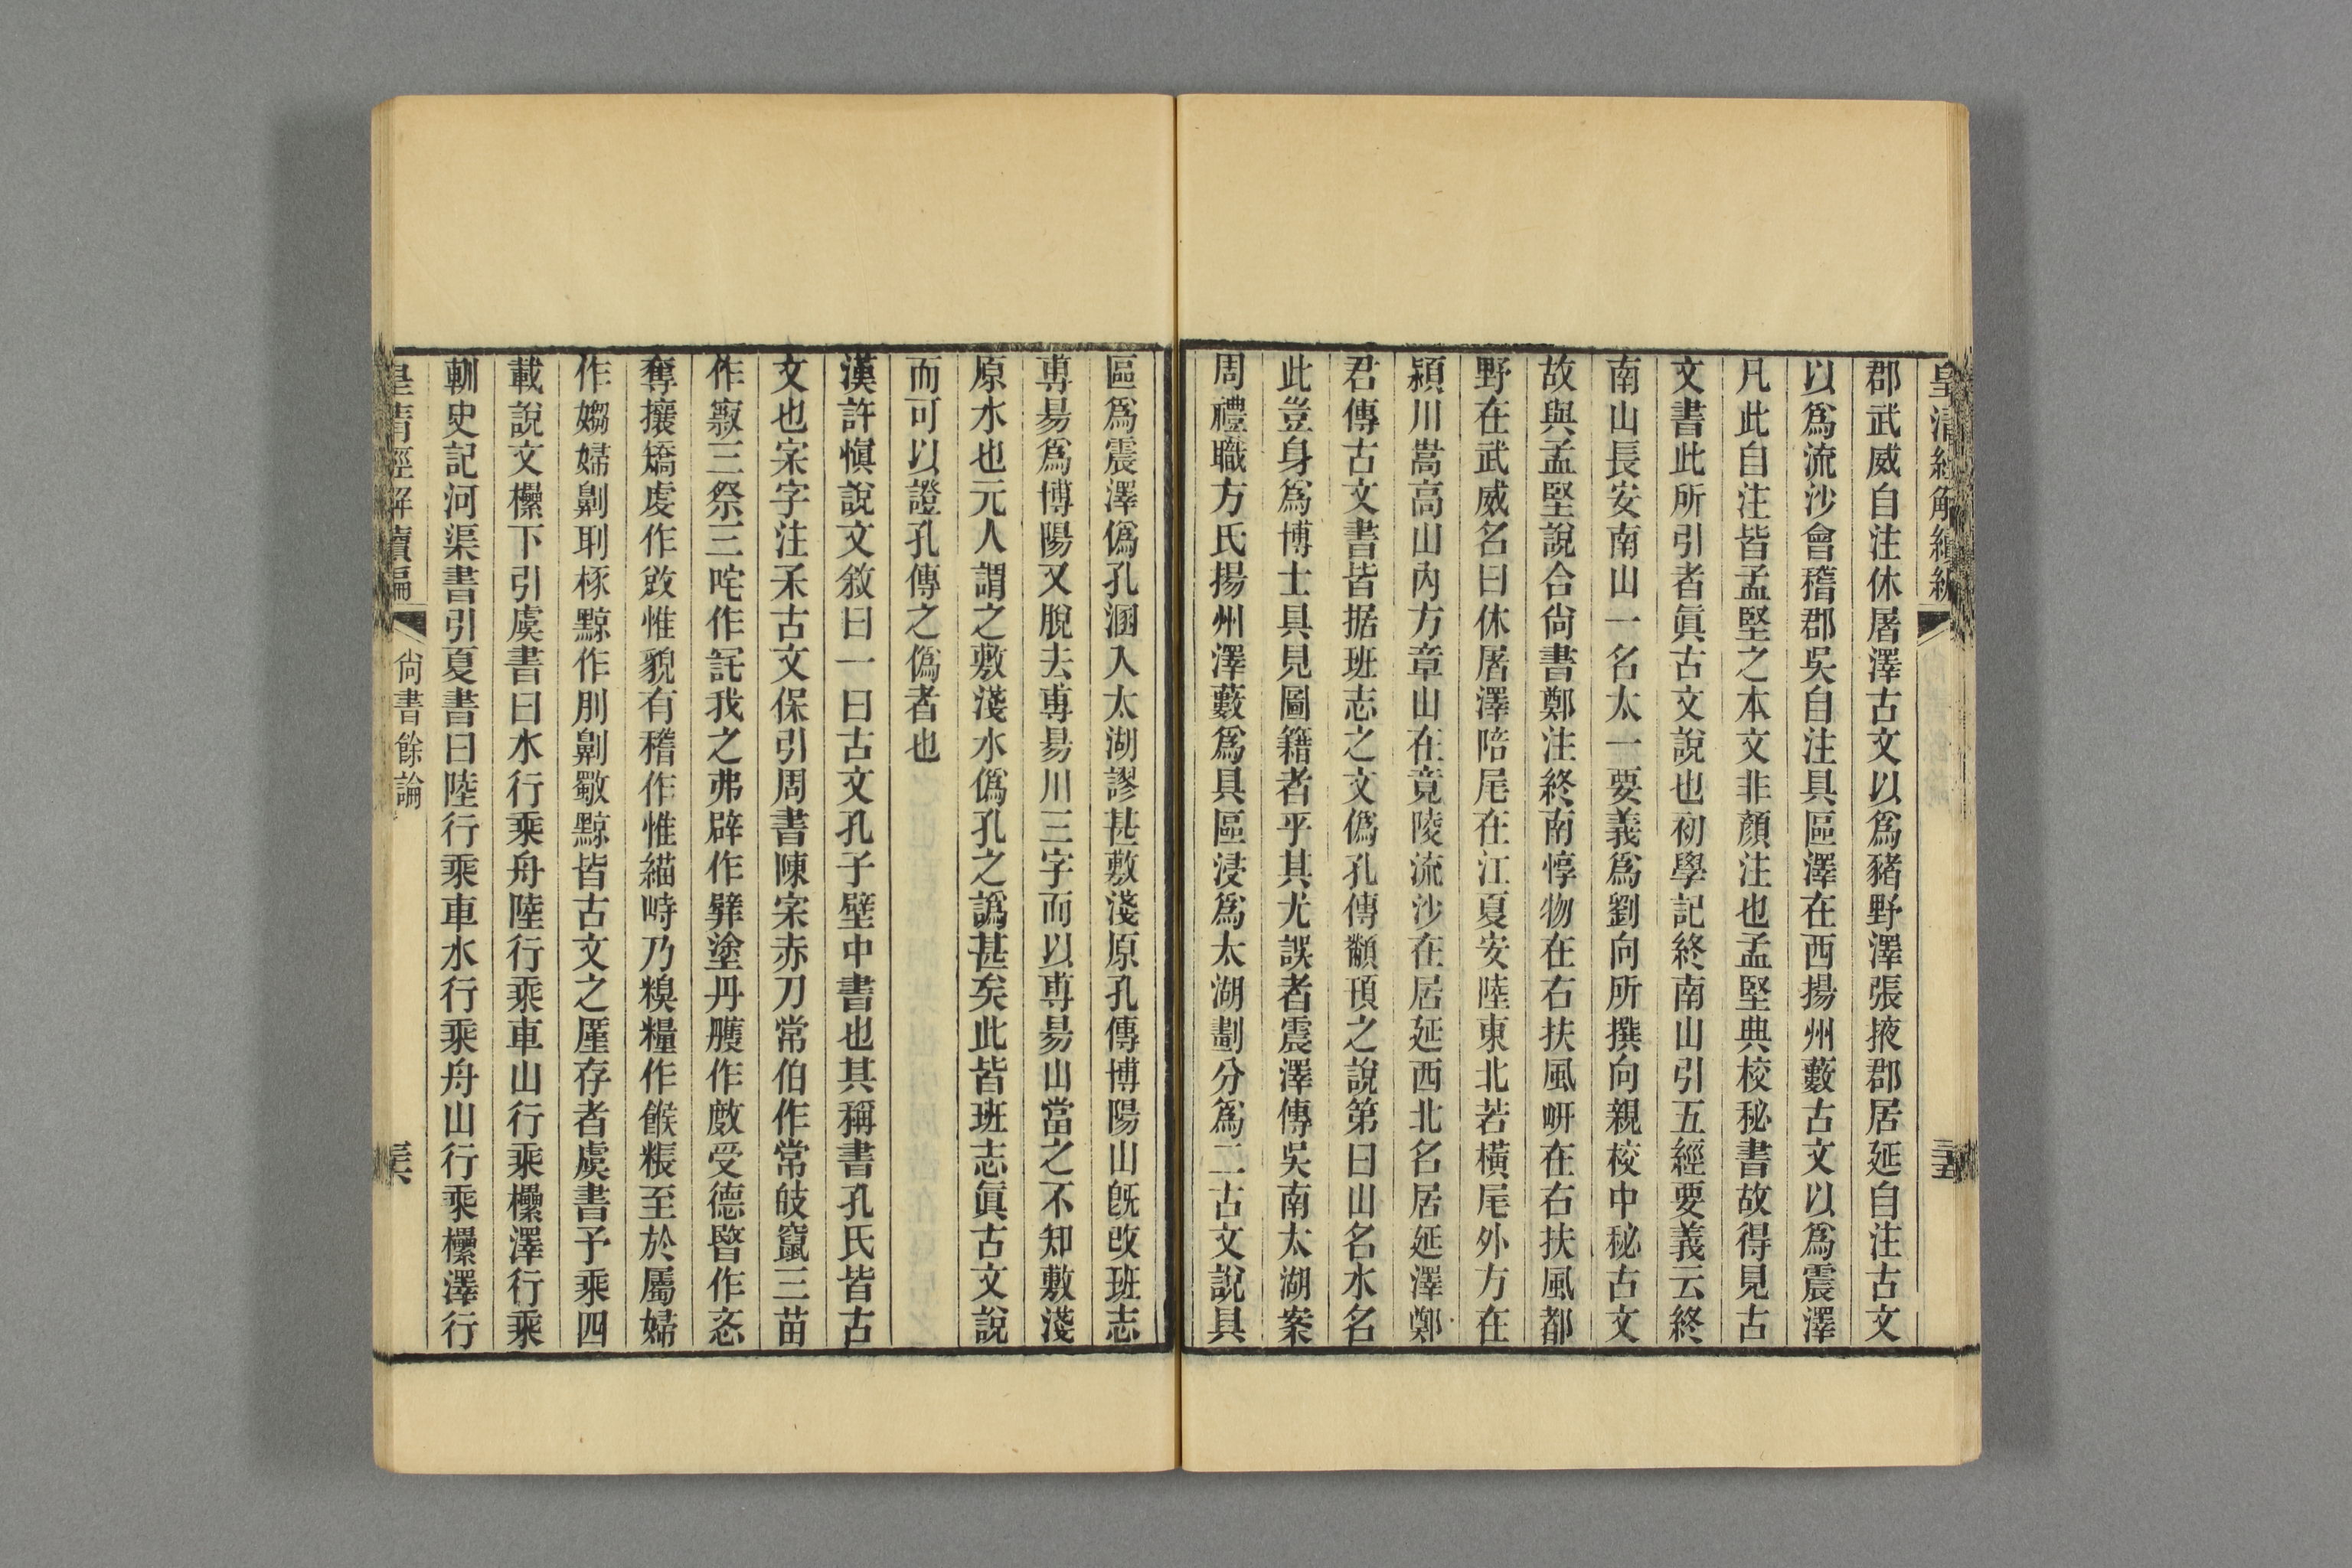 皇清經解續編
郡武威自注休屠澤古文以爲豬野澤張掖郡居延自注古文
以爲流沙會稽郡吳自注具區澤在西揚州藪古文以爲震澤
凡此自注皆孟堅之本文非顏注也孟堅典校秘書故得見古
文書此所引者眞古文說也初學記終南山引五經要義云終
南山長安南山一名太一要義爲劉向所撰向親校中秘古文
故與孟堅說合尙書鄭注終南惇物在右扶風岍在右扶風都
野在武威名曰休屠澤陪尾在江夏安陸東北若橫尾外方在
潁川嵩高山內方章山在竟陵流沙在居延西北名居延澤鄭
君傳古文書皆据班志之文僞孔傳顢頇之說第曰山名水名
此豈身爲博士具見圖籍者乎其尤誤者震澤傳吳南太湖案
周禮職方氏揚州澤藪爲具區浸爲太湖劃分爲二古文說具
區爲震澤僞孔溷入太湖謬甚敷淺原孔傳博陽山旣改班志
尃昜爲博陽又脫去尃昜川三字而以尃昜山當之不知敷淺
原水也元人謂之敷淺水僞孔之譌甚矣此皆班志眞古文說
而可以證孔傳之僞者也
漢許愼說文敘曰一曰古文孔子壁中書也其稱書孔氏皆古
文也宷字注㐼古文保引周書陳宷赤刀常伯作常㱿竄三苗
作䆿三祭三咤作㓃我之弗辟作㢸塗丹雘作㪠受德暋作忞
奪攘矯虔作敓惟貌有稽作惟緢峙乃糗糧作餱粻至於屬婦
作媰婦劓刵椓黥作刖劓斀黥皆古文之厪存者虞書予乘四
載說文欙下引虞書曰水行乘舟陸行乘車山行乘欙澤行乘
輴史記河渠書引夏書曰陸行乘車水行乘舟山行乘欙澤行
皇清經解續編
尙書餘論